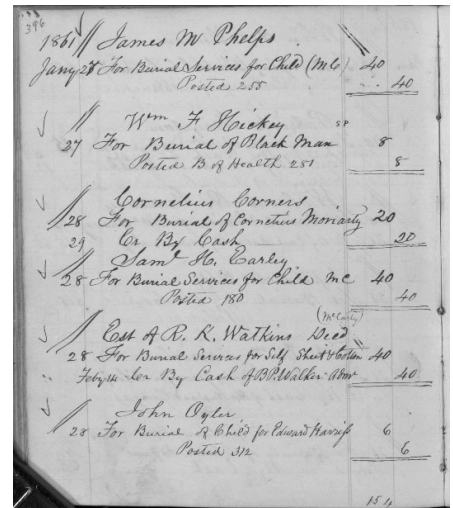 396
1861 James M Phelps
Jany 28 For Burial Services for Child (M Co) 40
Posted 255 40
Wm F Hickey
27 For Burial of Black Man 8
Posted B of Health 281 8
Cornelius Corners
28 For Burial of Cornelius Moriarty 20
29 Cr By Cash 20
Saml H. Earley
28 For Burial Services for Child MC 40
Posted 180 40
(McCarty)
Est of R. K. Watkins Decd
28 For Burial Services for Self Sheet & Cotton 40
Feby 14 Cr By Cash of B P. Walker Admr 40
John Oyler
28 For Burial of Child for Edward Harriss 6
Posted 312 6
154